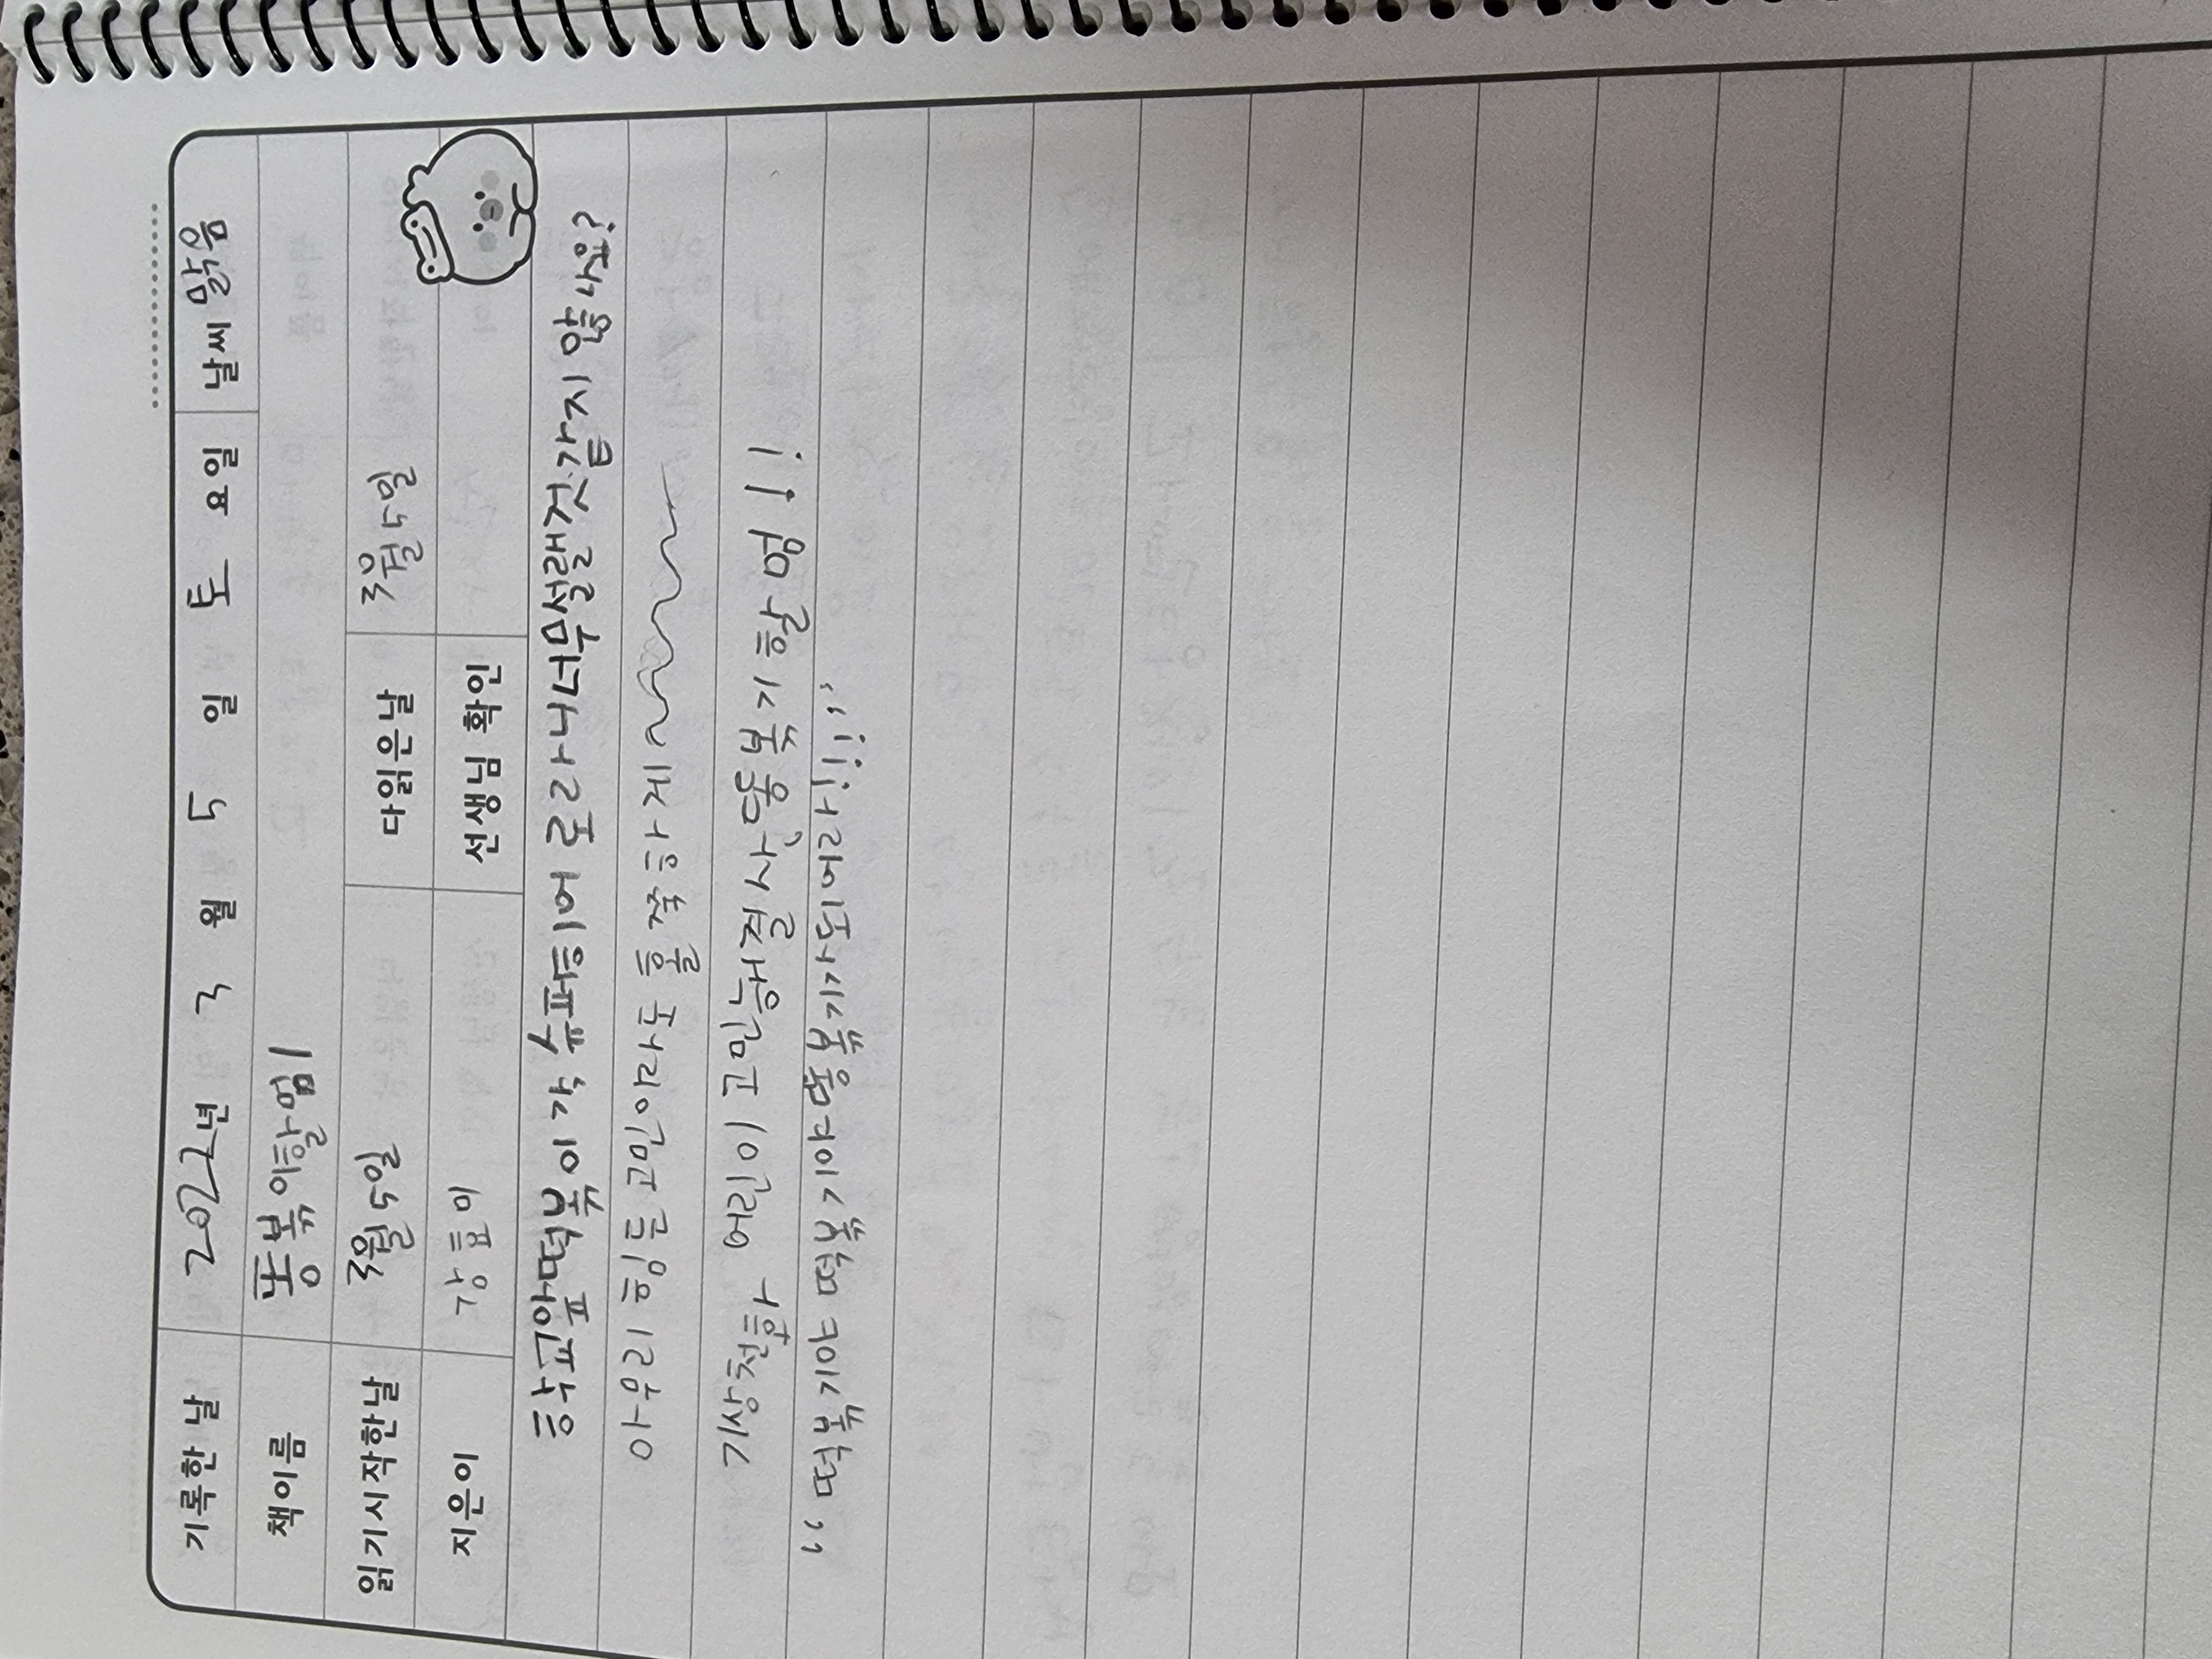 기록한 날 2022년 3 월 5 일 토 요일 날씨 맑음
책이름 똥볶이할멈1
읽기시작한날 3월5일 다읽은날 3월5일
지은이 강효미 선생님 확인
학교앞떡볶이 각 슈퍼히어로라니너무설랠것같지 않나요?
아무리 힘든 고민이라도 홀쭉하게
기상천화 어린이 고민해결사 똥볶기할멈!!
“떡볶기야 떡볶기야똥볶기가되어라!!!”